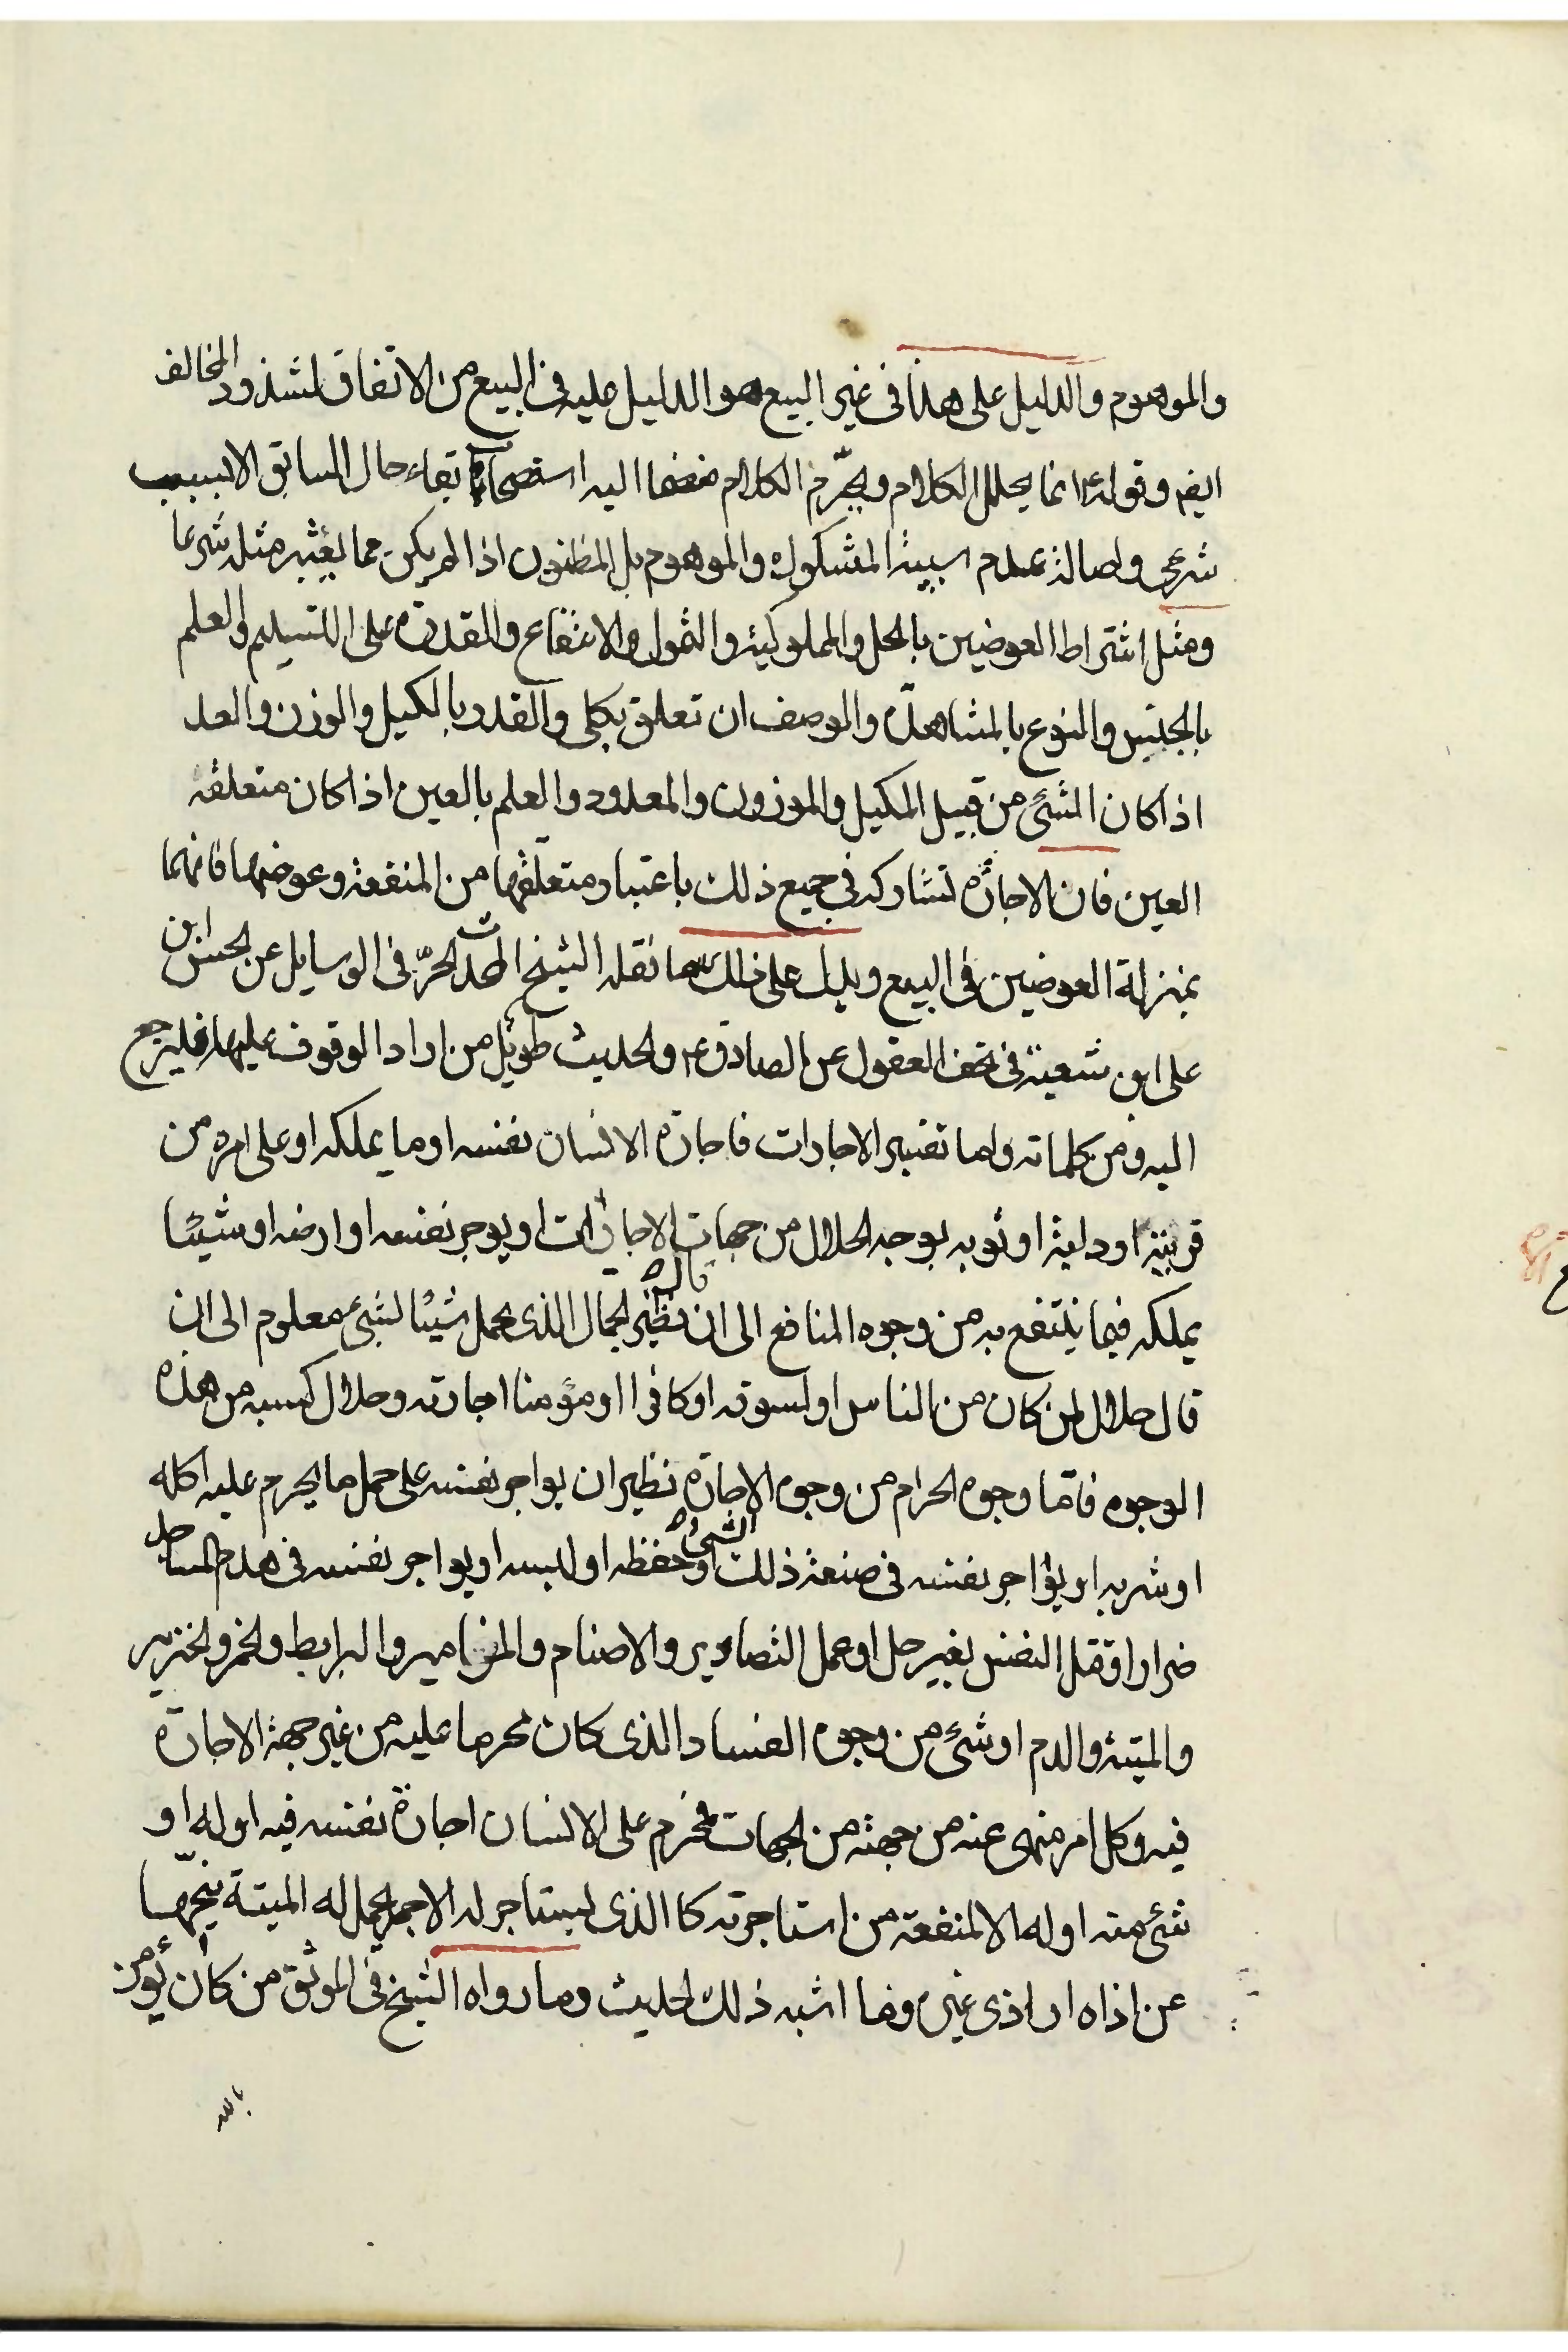 والموهوم والدليل على هذا فى غير البيع هو الدليل عليه فى البيع من الاتفاق لشذوذ المخالف
ايضه وقوله ع انما يحلل الكلام ويحرّم الكلام منضما اليه استصحاب بقاء حال السابق الا بسبب
شرعى واصالة عدم سببية المشكوك والموهوم بل المظنون اذا لم يكن مما يعتبر مثله شرعا
ومثل اشتراط العوضين بالحل والمملوكية والتمول والانتفاع والقدرة على التسليم والعلم
بالجنس والنوع بالمشاهدة والوصف ان تعلق بكلى والقدر بالكيل والوزن والعد
اذا كان الشئ من قبيل المكيل والموزون والمعدود والعلم بالعين اذا كان متعلقه
العين فان الاجارة تشاركه فى جميع ذلك باعتبار متعلقها من المنفعة وعوضها فانهما
بمنزلة العوضين فى البيع ويدل على ذلك ما نقله الشيخ المحدث الحرّ فى الوسايل عن الحسن ابن
على ابن شعبة فى تحف العقول عن الصادق ع والحديث طويل من اراد الوقوف عليها فليرجع
اليه ومن كلماته واما تفسير الاجارات فاجارة الانسان نفسه او ما يملكه او على امره من
قرابته او دابته او ثوبه بوجه الحلال من جهات الاجارات او يوجر نفسه او ارضه او شيئا
يملكه فيما ينتفع به من وجوه المنافع الى ان قال نظير الجمال الذى يحمل شيئا لشئ معلوم الى ان
قال حلال لمن كان من الناس او لسوقه او كافرا او مؤمنا اجارته وحلال كسبه من هذه
الوجوه فامّا وجوه الحرام من وجوه الاجارة نظير ان يواجر نفسه على حمل ما يحرم عليه اكله
او شربه او يؤاجر نفسه فى صنعة ذلك الشئ او حفظه او لبسه او يواجر نفسه فى هدم المساجد
ضرارا او قتل النفس بغير حل او عمل التصاوير والاصنام والمزامير والبرابط والخمر والخنزير
والميتة والدم او شئ من وجوه الفساد الذى كان محرما عليه من غير جهة الاجارة
فيه وكل امر منهى عنه من جهة من الجهات فمحرم على الانسان اجارة نفسه فيه او له او
شئ منه او له الا لمنفعة من استاجرته كا الذى يستاجر له الاجير يحمل له الميتة ينحّيها
عن اذاه او اذى غيره وما اشبه ذلك الحديث وما رواه الشيخ فى الموثق من كان يؤمن
بالله